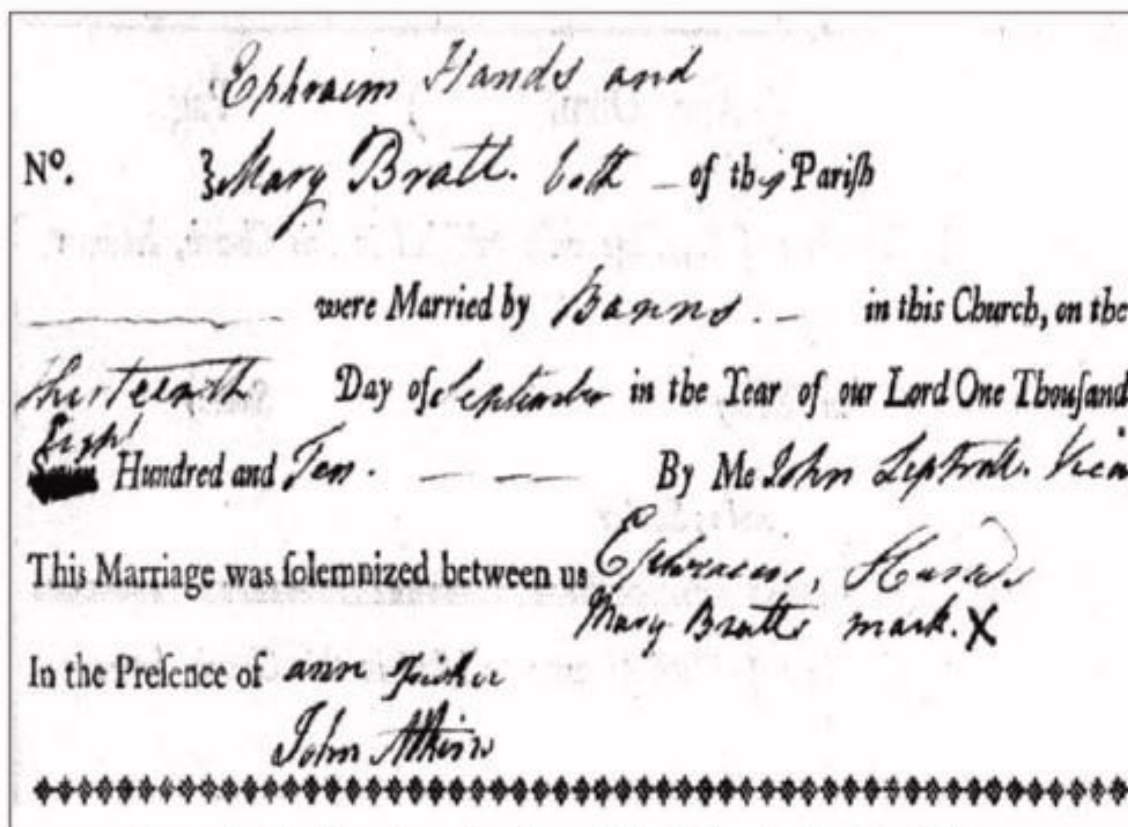 Ephraim Hands and
No. } Mary Bratt. both — of this Pariſh
were Married by Banns. — in this Church, on the
thirteenth Day of September in the Year of our Lord One Thouſand
Eigh! Hundred and Ten. — — — By Me John Vica
This Marriage was ſolemnized between us Ephraim, Hands
Mary Bratts mark. X
In the Preſence of ann
John Atkins